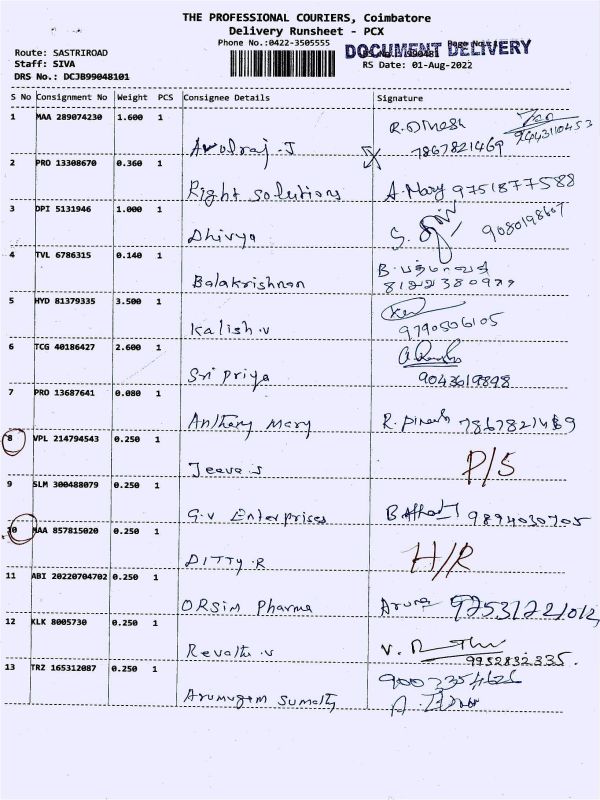 THE PROFESSIONAL COURIERS, Coimbatore
Delivery Runsheet - PCX
Phone No.:0422-3505555
DOCUMENT DELIVERY
Route: SASTRIROAD
Staff: SIVA
RS Date: 01-Aug-2022
DRS No.: DCJB99048101
S No Consignment No Weight PCS Consignee Details Signature
1 MAA 289074230 1.600 1 Arulraj.J 7867821469 9443110453
2 PRO 13308670 0.360 1 Right solutions A.Mary 9751877588
3 DPI 5131946 1.000 1 Dhivya S. 9080198607
4 TVL 6786315 0.140 1 Balakrishnan B.
5 HYD 81379335 3.500 1 Kalish.v 9790506105
6 TCG 40186427 2.600 1 Sri priya 9043619898
7 PRO 13687641 0.080 1 Anthony Mary R. Dinesh 7867821469
8 VPL 214794543 0.250 1 Jeeva.s P/S
9 SLM 300488079 0.250 1 G.v Enterprises 9894030705
10 MAA 857815020 0.250 1 DITTY.R H/R
11 ABI 20220704702 0.250 1 ORSIM Pharma Aruna
12 KLK 8005730 0.250 1 Revathi.v V. 9952832335.
13 TRZ 165312087 0.250 1 Arumugam A.